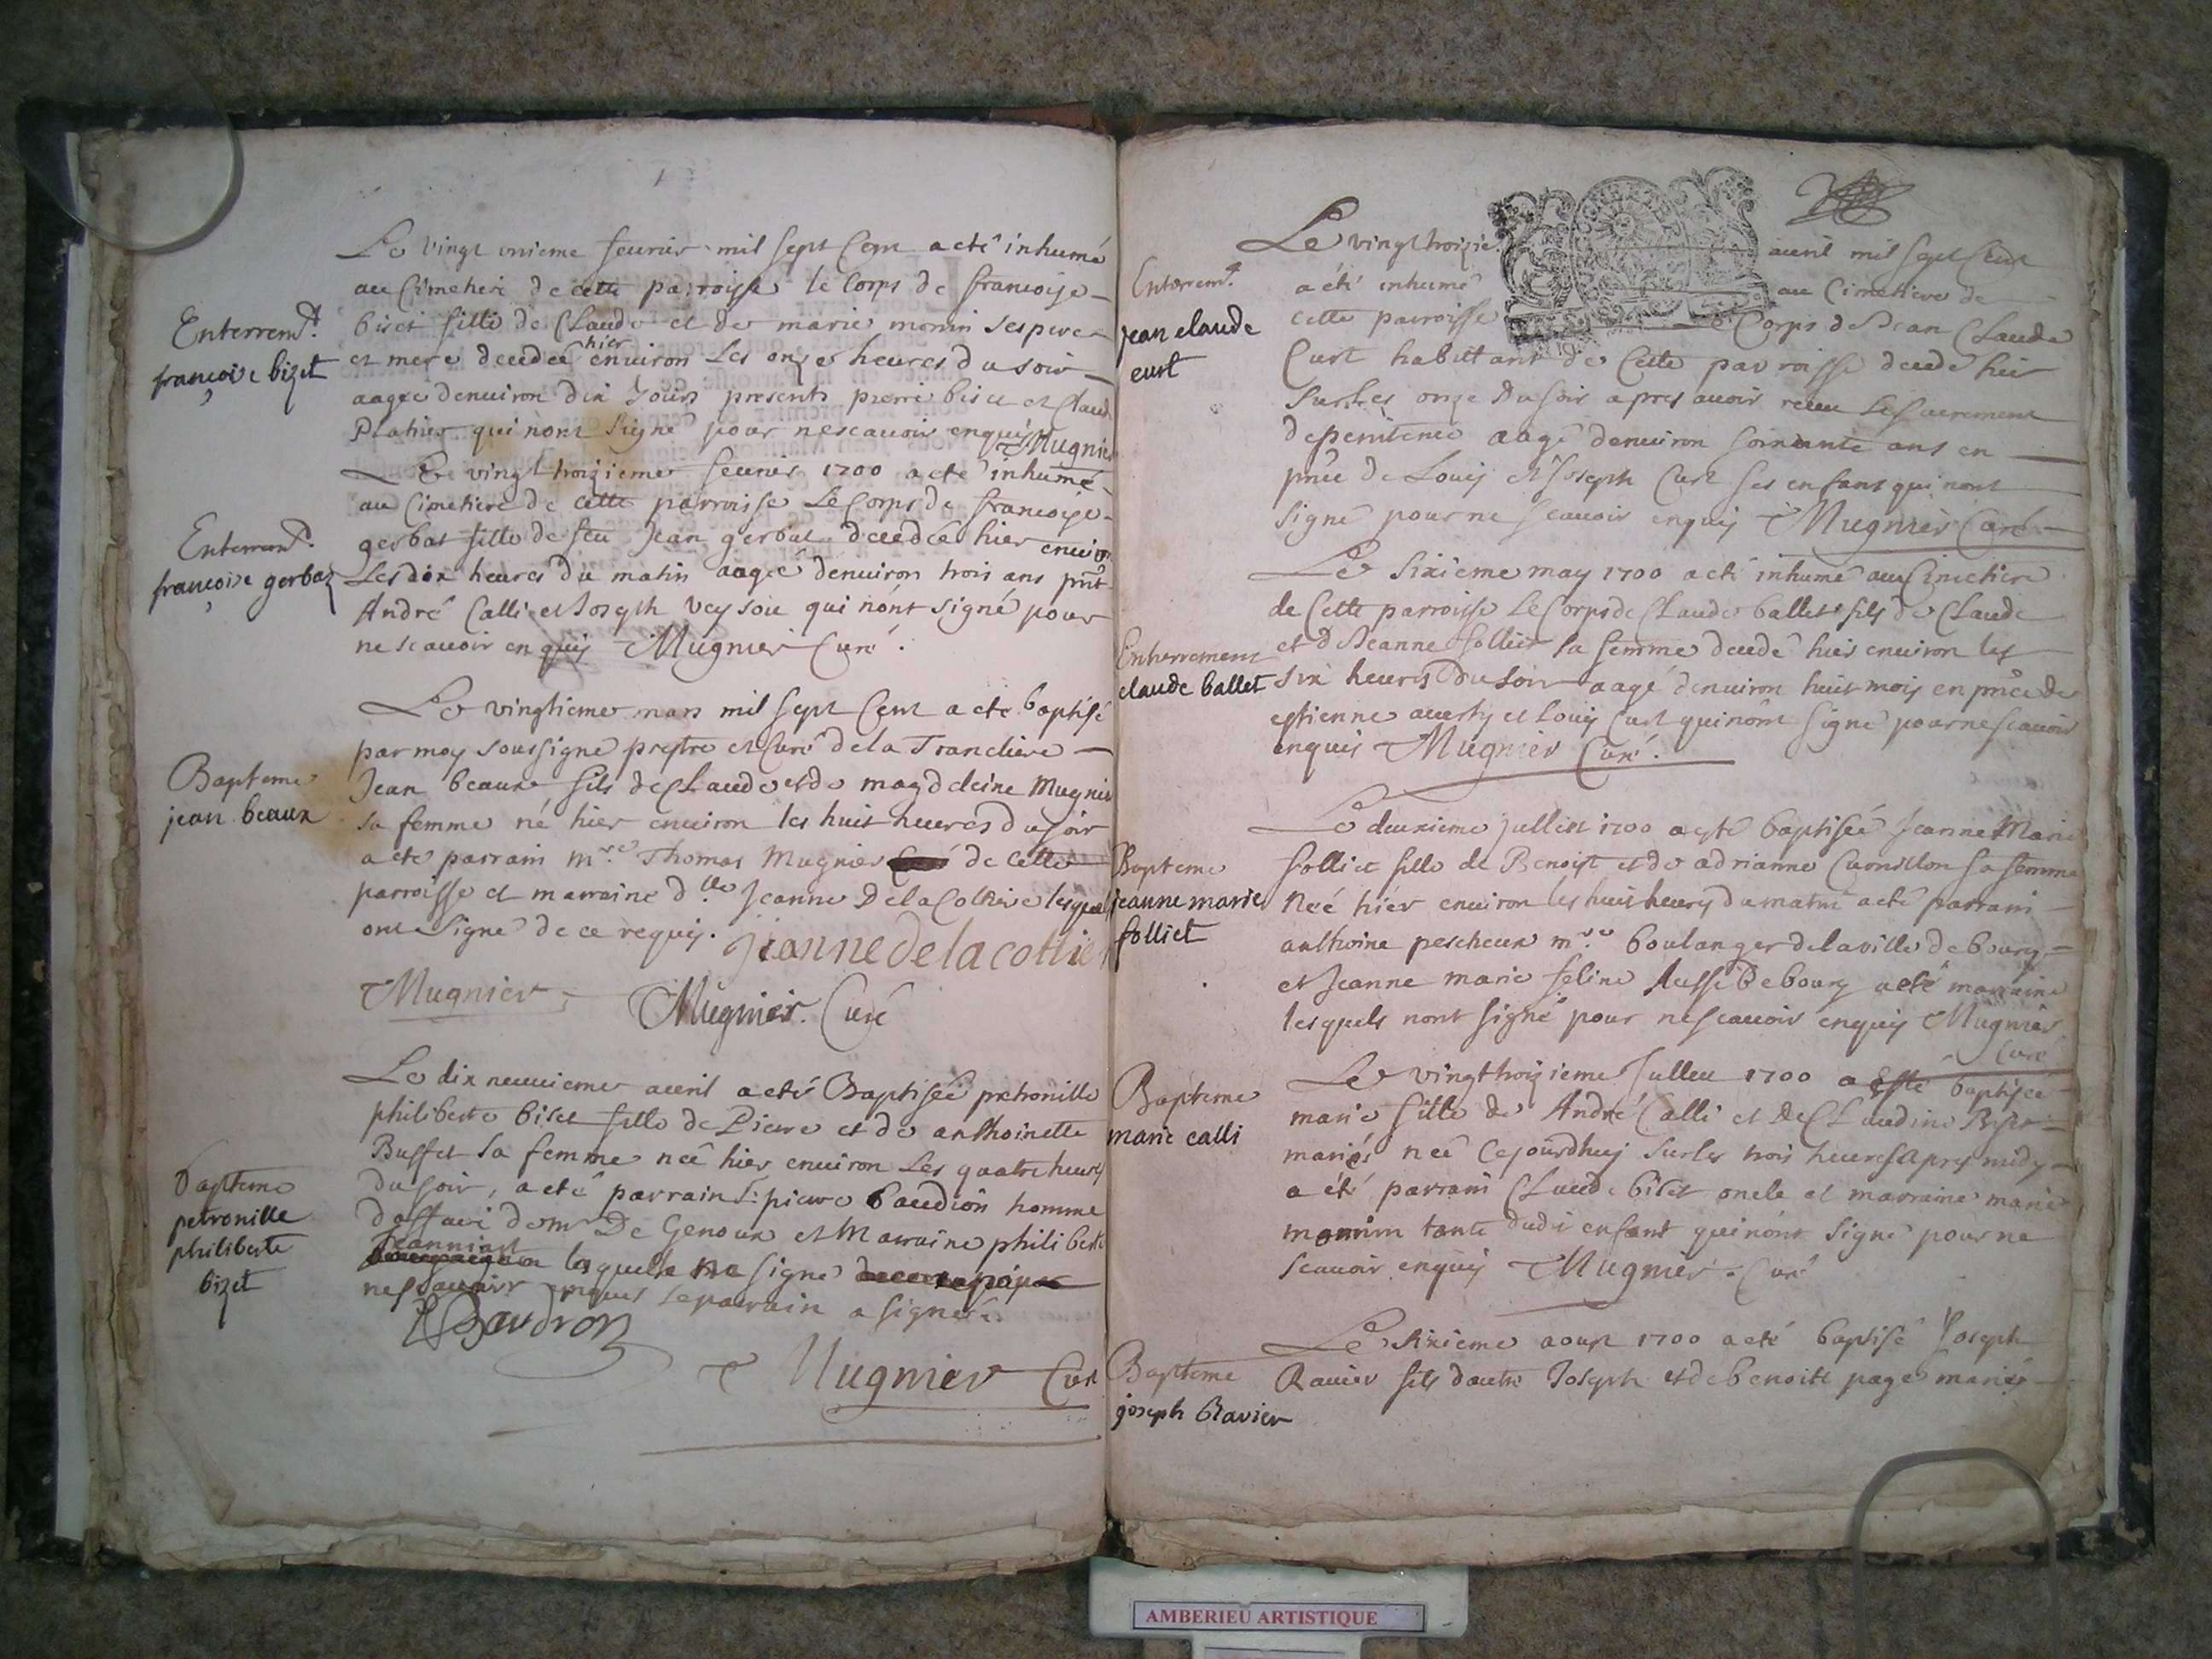 Enterremt.
françoise bizet
Le vingt unieme feurier mil sept Cent a eté inhumé
au Cimetiere de cette parroisse le Corps de francoise
biset fille de Claude et de marie monin ses pere
et mere decedeé hier enuiron Les onze heures du soir
aagée denuiron dix Jours presents pierre biset et Claude
Plattier qui n'ont signé pour ne scauoir enquis Mugnier
Enterremt.
françoise gerbaz
Le vingt troizieme feurier 1700 a eté inhumé
au Cimetiere de cette parroisse Le Corps de francoise
gerbat fille de feu Jean gerbat decedeé hier enuiron
Les dix heures du matin aageé denuiron trois ans pnt
André Calli et Joseph Veysoie qui n'ont signé pour
ne scauoir enquis Mugnier Curé.
Bapteme
jean beaux
Le vingtieme mars mil sept Cent a eté baptisé
par moy soussigné prestre et Curé de la Trancliere
Jean beaux fils de Claude et de magdeleine Mugnier
sa femme né hier enuiron les huit heures du soir
a eté parrain mre. Thomas Mugnier de cette
parroisse et marraine dlle Jeanne De la Cottiere lesquels
ont signé de ce requis. jeanne de la cottie
Mugnier Mugnier Curé
bapteme
petronille
philiberte
bizet
Le dix neuuieme auril a eté Baptiseé petronille
philiberte biset fille de Pierre et de anthoinette
Buffet sa femme neé hier enuiron Les quatre heures
du soir, a eté parrain Sr. pierre baudron homme
daffaire de mr De Genoux et Marraine philiberte
laquelle na signé
ne scauoir enquis le parrain a signé
Baudron
Mugnier Curé
Enterremt.
jean claude
curt
Le vingt troizie auril mil sept Cent
a eté inhumé au Cimetiere de
cette parroisse Le Corps de Jean Claude
Curt habittant de Cette parroisse decedé hier
sur les onze du soir apres auoir receu Le sacrement
de penitence aagé denuiron soixante ans en
pnce de Louis et Joseph Curt ses enfants qui nont
signé pour ne scauoir enquis Mugnier Curé
Enterrement
claude ballet
Le sixieme may 1700 a eté inhumé au Cimetiere
de Cette parroisse Le Corps de Claude ballet fils de Claude
et de Jeanne folliet sa femme decedé hier enuiron les
six heures du soir aagé denuiron huit mois en pnce de
estienne et Louis Curt qui n'ont signé pour ne scauoir
enquis Mugnier Curé.
Bapteme
jeanne marie
folliet
Le deuxieme julliet 1700 a esté baptiseé Jeanne Marie
folliet fille de Benoist et de adrianne Curnillon sa femme
Neé hier enuiron les huit heures du matin a eté parrain
anthoine pescheux mre boulanger de la ville de bourg
et Jeanne marie feline aussi de bourg a eté marraine
lesquels n'ont signé pour ne scauoir enquis Mugnier
Curé
Bapteme
marie calli
Le vingt troizieme Jullet 1700 a esté baptiseé
marie fille de André Calli et de Claudine Biset
mariés neé Cejourdhuy sur les trois heures apres midy
a été parrain Claude biset oncle et marraine marie
monnin tante dudit enfant qui n'ont signé pour ne
scauoir enquis Mugnier Curé
Bapteme
joseph Ravier
Le sixieme aoust 1700 a eté baptisé Joseph
Rauier fils dautre Joseph et de benoite page mariés
AMBERIEU ARTISTIQUE